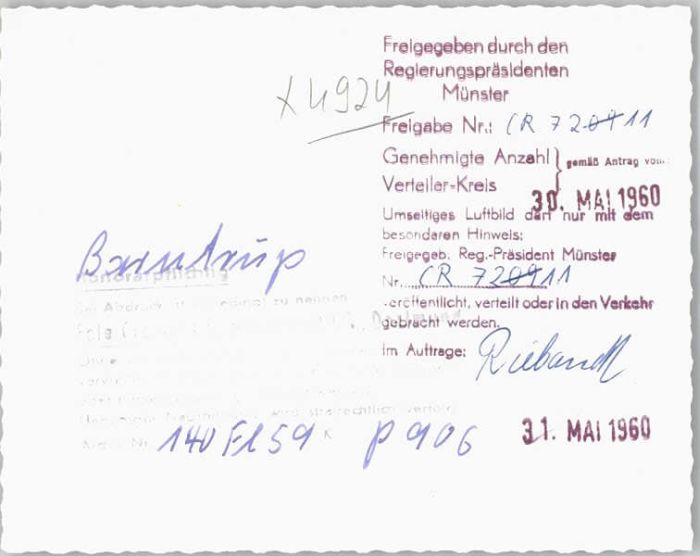 Freigegeben durch den
Regierungspräsidenten
Münster
X 4924
Freigabe Nr.: CR 7209 11
Genehmigte Anzahl } gemäß Antrag vom:
Verteiler-Kreis
30. MAI 1960
Umseitiges Luftbild darf nur mit dem
besonderen Hinweis:
Freigegeb. Reg.-Präsident Münster
Nr. CR 7209 11
veröffentlicht, verteilt oder in den Verkehr
gebracht werden.
Im Auftrage:
Barntrup
Honorarpflichtig
Bei Abdruck ist zu nennen
Dortmund
wird strafrechtlich verfolgt
140 Fl 59 K P 906
31. MAI 1960